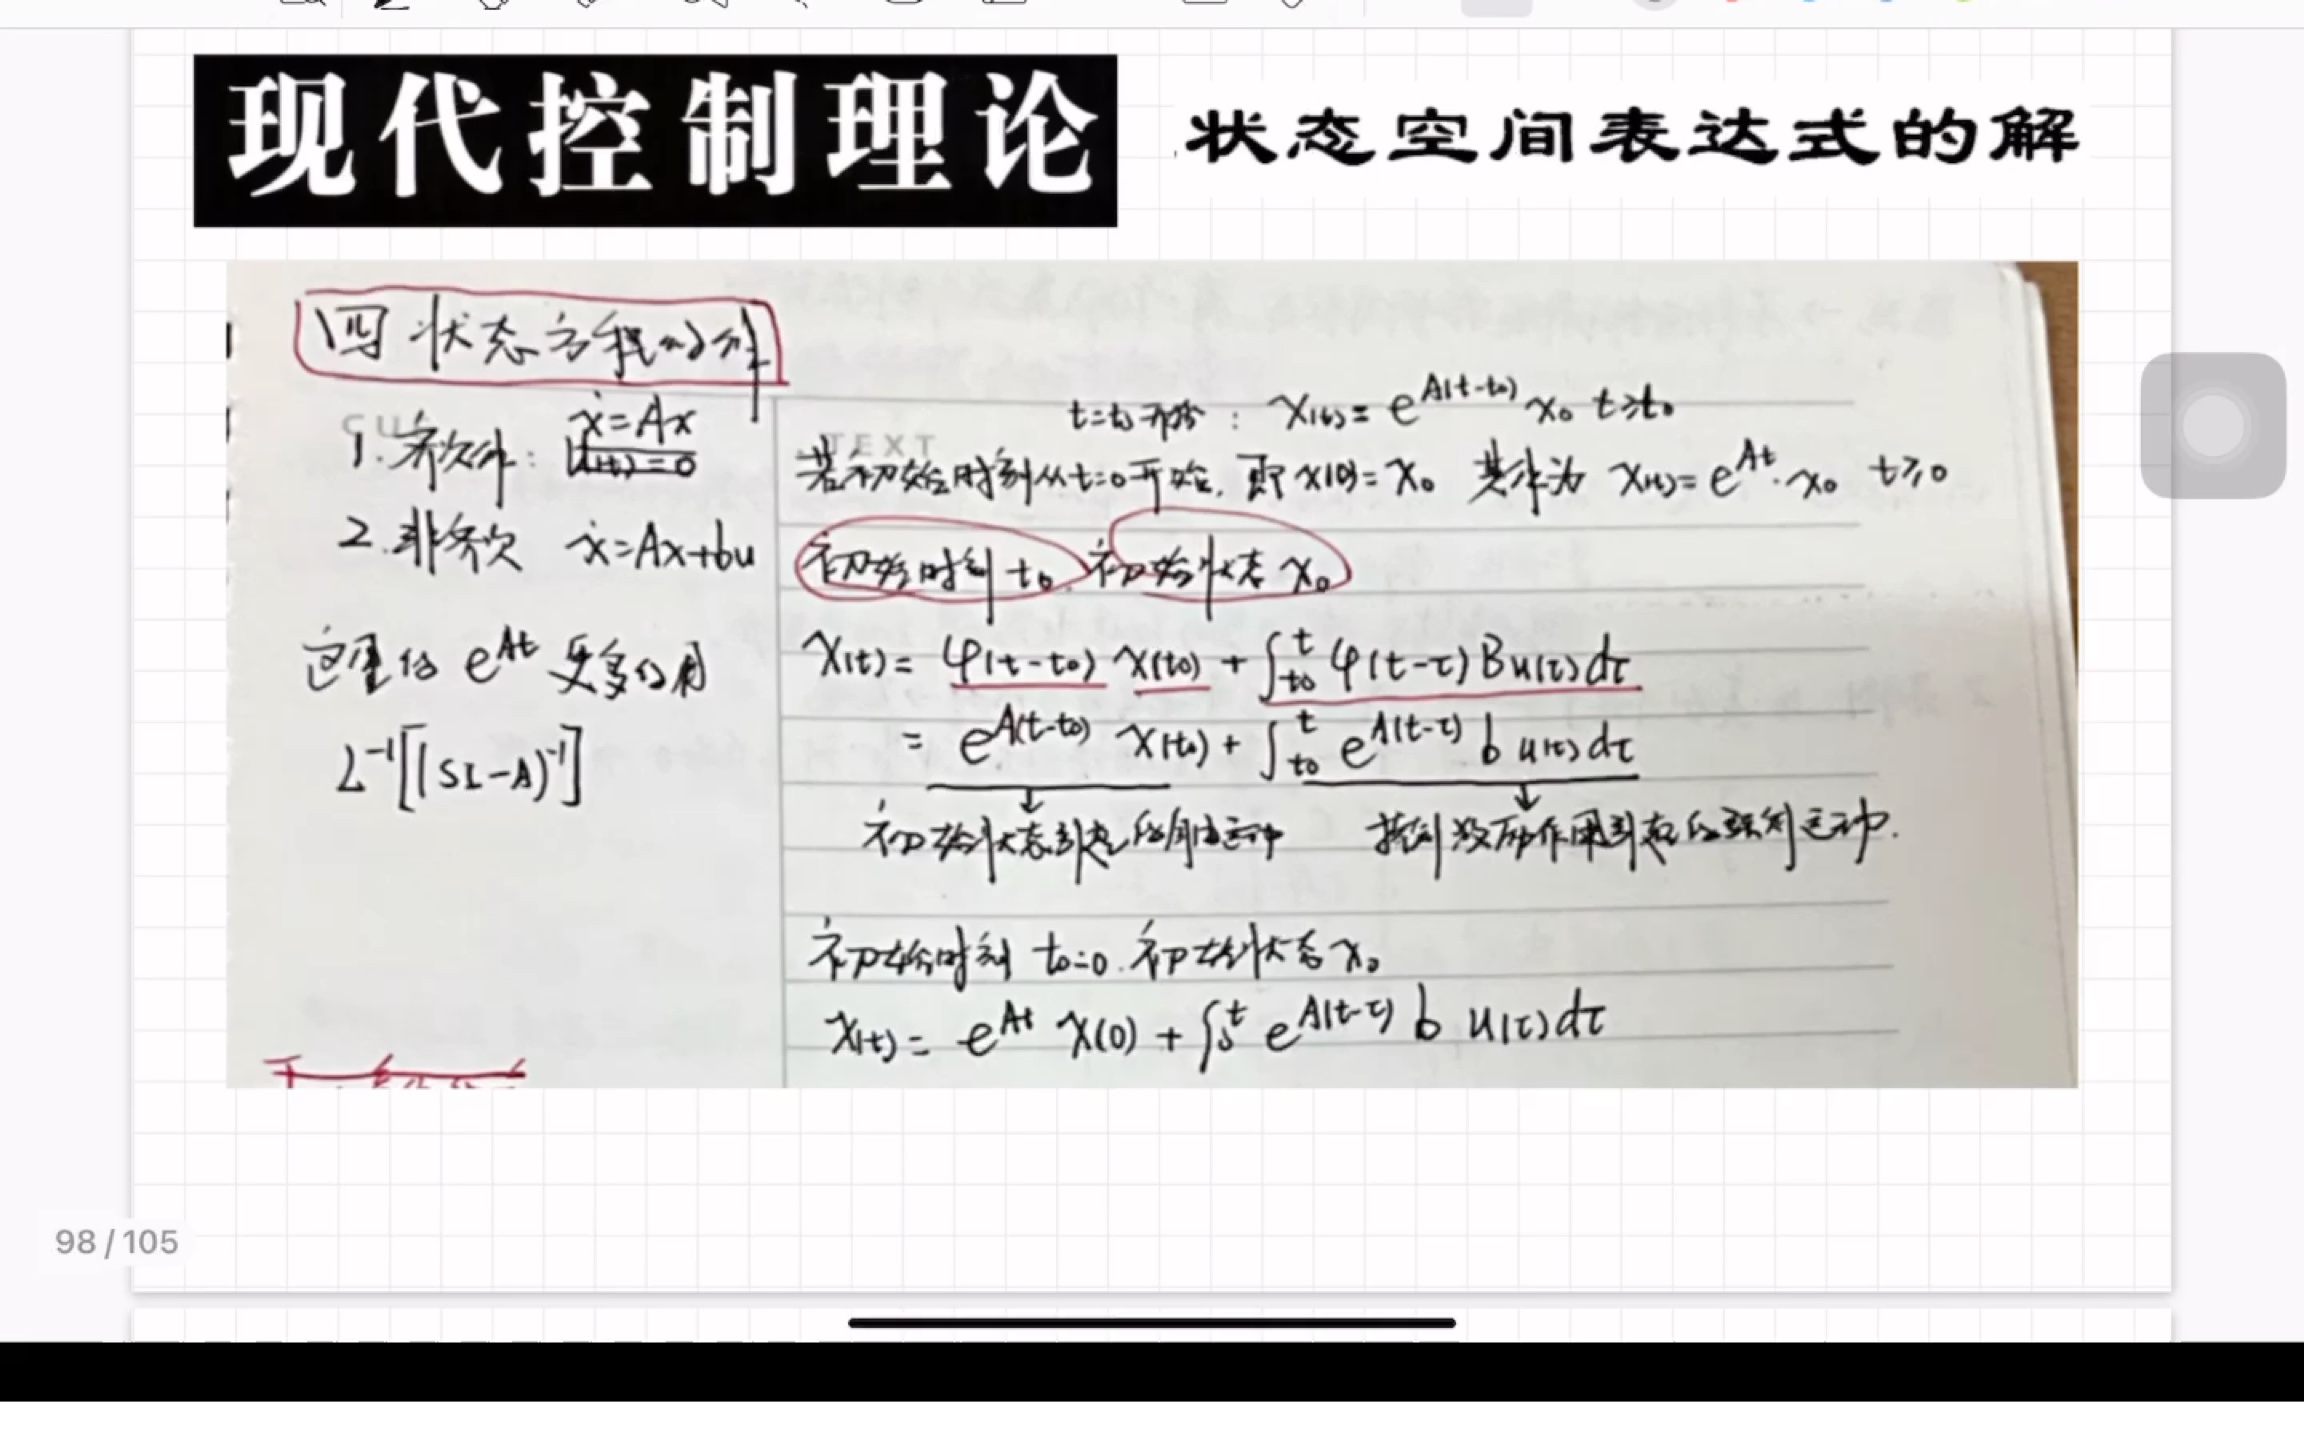 现代控制理论 状态空间表达式的解
四 状态方程的解
1. 齐次解: ẋ=Ax
u(t)=0
2. 非齐次 ẋ=Ax+bu
这里的 e^{At} 更多的用
L⁻¹[(SI-A)⁻¹]
TEXT
t=t₀开始: x(t)= e^{A(t-t₀)} x₀ t≥t₀
若初始时刻从t=0开始, 即 x(0)= x₀ 其解为 x(t)= e^{At}·x₀ t≥0
初始时刻 t₀. 初始状态 x₀
x(t)= φ(t-t₀) x(t₀) + ∫_{t₀}^{t} φ(t-τ) B u(τ) dτ
= e^{A(t-t₀)} x(t₀) + ∫_{t₀}^{t} e^{A(t-τ)} b u(τ) dτ
↓ ↓
初始状态引起的自由运动 控制激励作用引起的强制运动.
初始时刻 t₀=0. 初始状态 x₀
x(t)= e^{At} x(0) + ∫_0^t e^{A(t-τ)} b u(τ) dτ
98 / 105